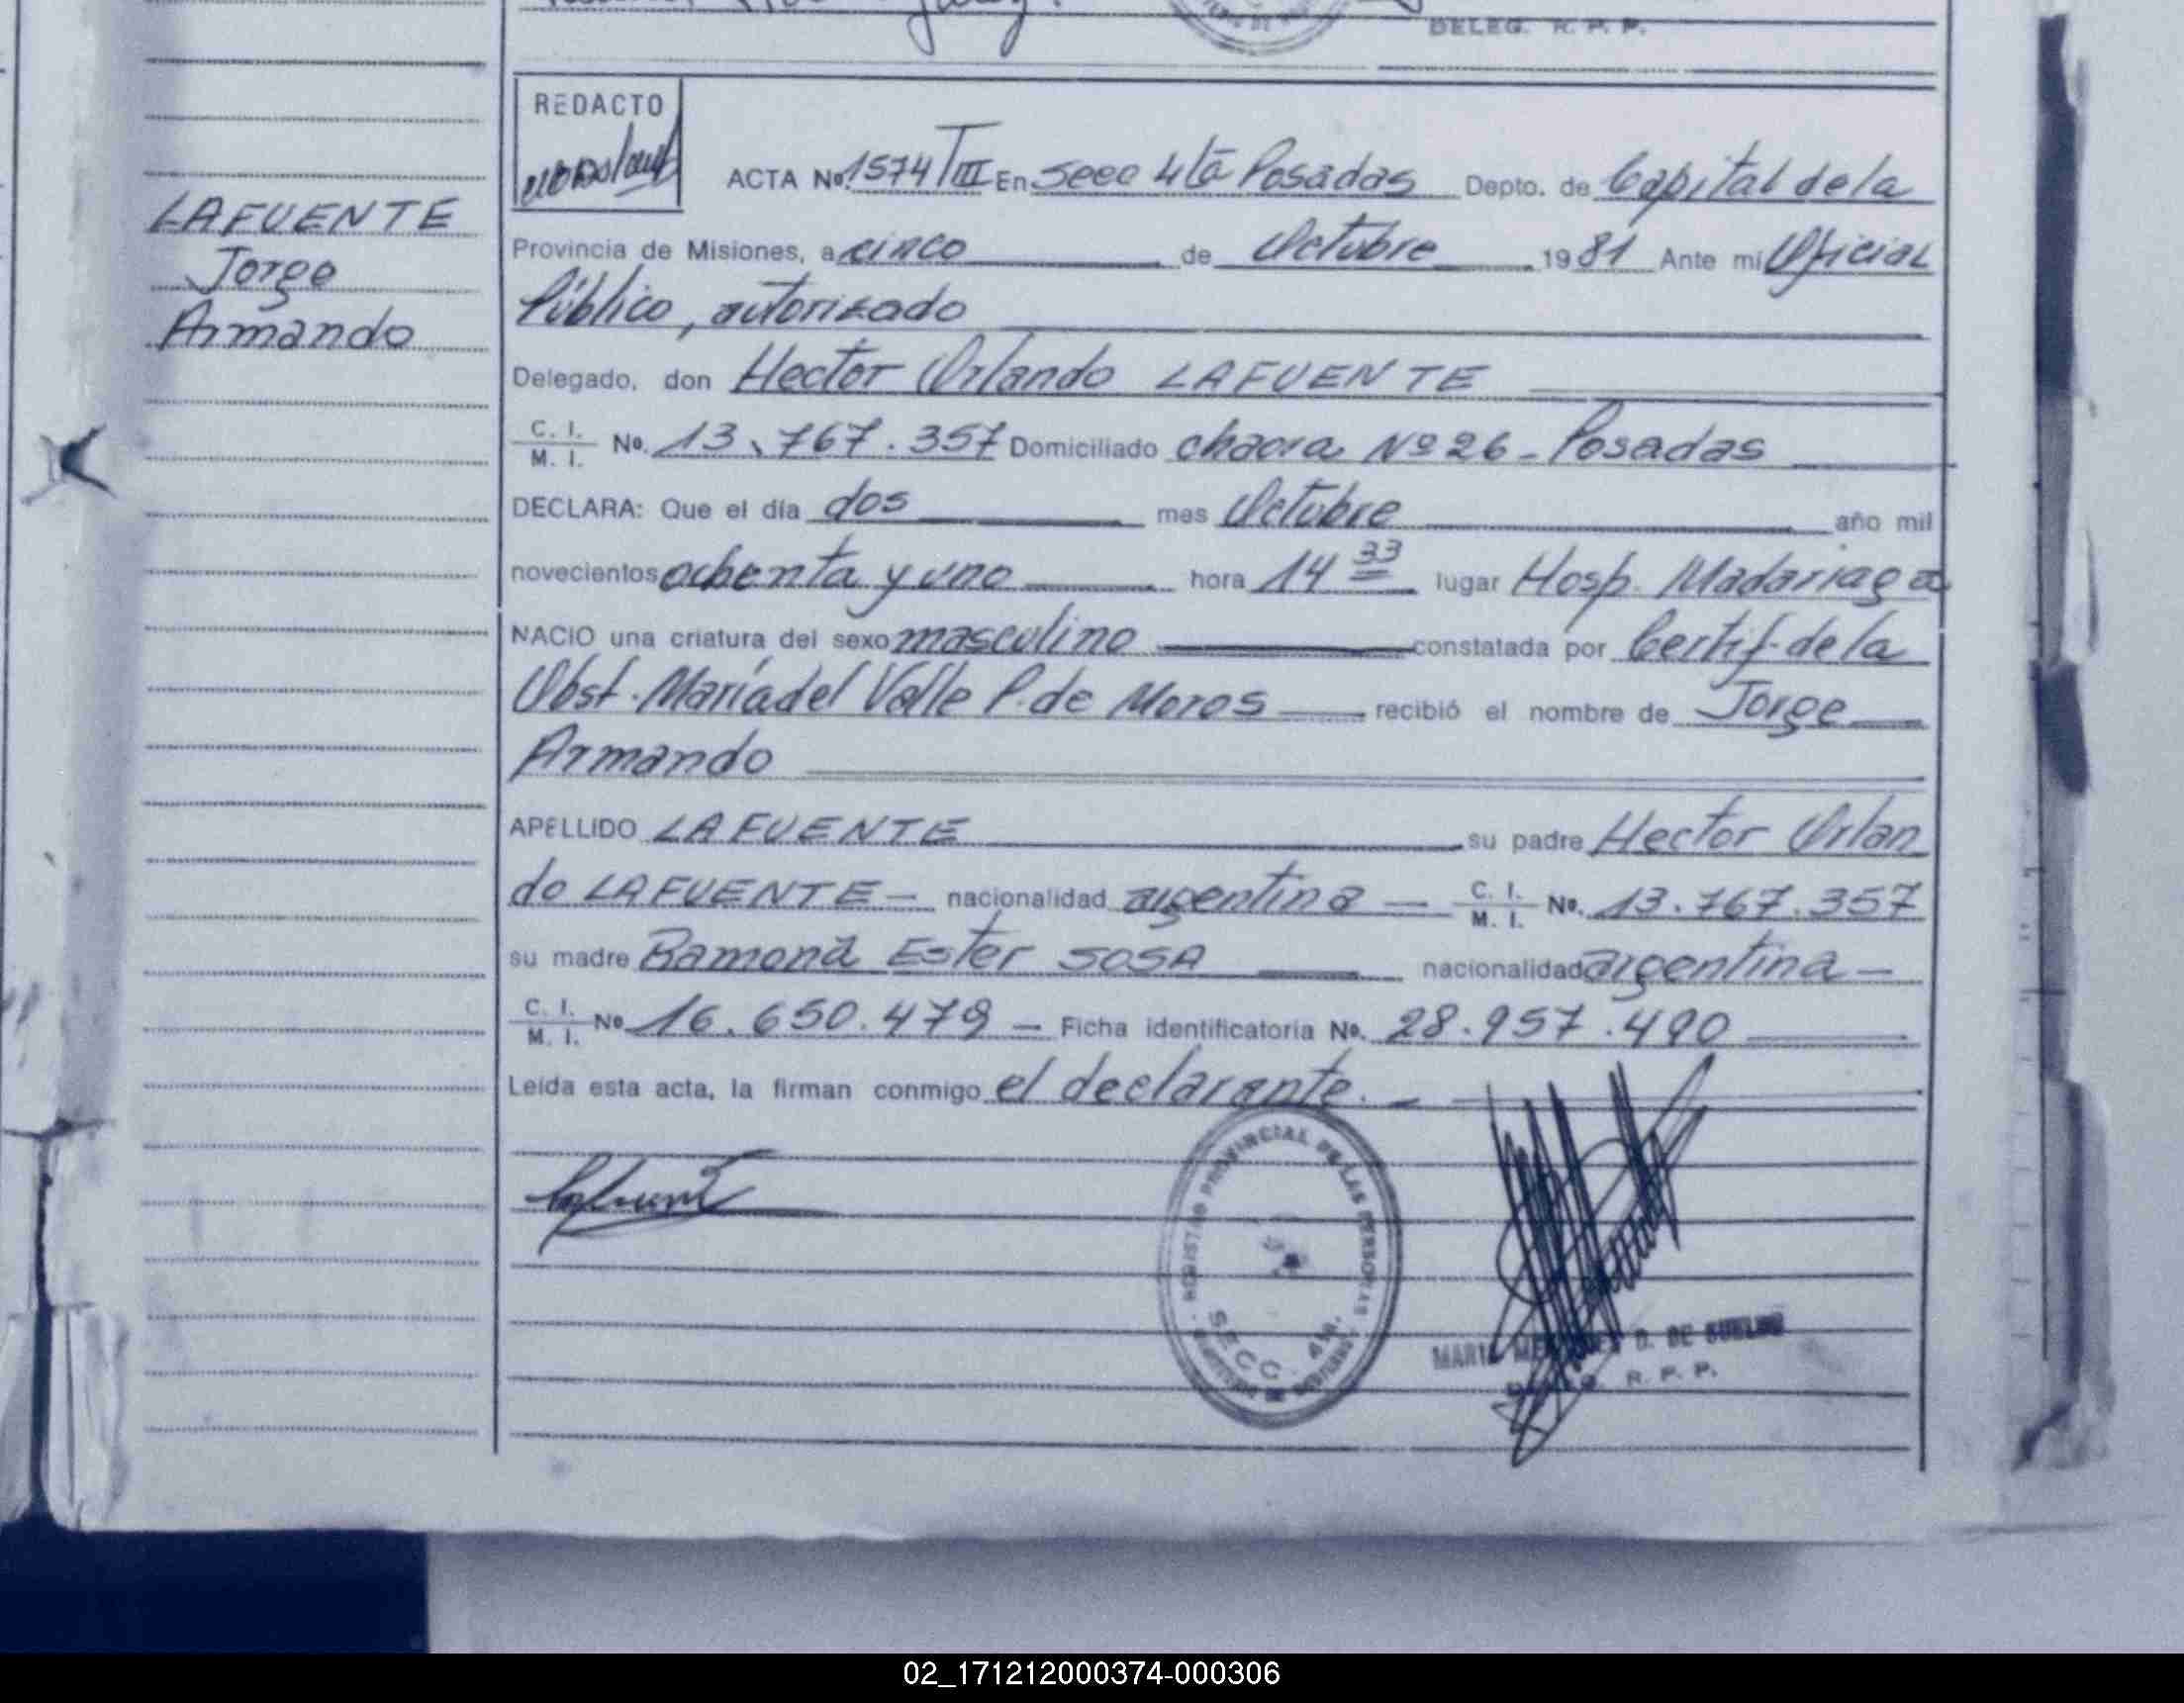 DELEG. R. P. P.
REDACTO
ACTA No. 1574/III En Secc 4ta Posadas Depto. de Capital de la
LAFUENTE
Jorge
Armando
Provincia de Misiones, a cinco de Octubre 1981 Ante mí Oficial
Público, autorizado
Delegado, don Hector Orlando LAFUENTE
C. I.
M. I. No. 13.767.357 Domiciliado chacra Nº 26 - Posadas
DECLARA: Que el día dos mes Octubre año mil
novecientos ochenta y uno hora 14 33 lugar Hosp. Madariaga
NACIO una criatura del sexo masculino constatada por Certif. de la
Obst. María del Valle P. de Moros recibió el nombre de Jorge
Armando
APELLIDO LAFUENTE su padre Hector Orlan
do LAFUENTE - nacionalidad argentina - C. I. M. I. No. 13.767.357
su madre Ramona Ester SOSA nacionalidad argentina -
C. I.
M. I. No 16.650.479 - Ficha identificatoria No. 28.957.490
Leída esta acta, la firman conmigo el declarante. -
REGISTRO PROVINCIAL DE LAS PERSONAS
SECC. 4ta.
MARIA D. DE
R. P. P.
02_171212000374-000306